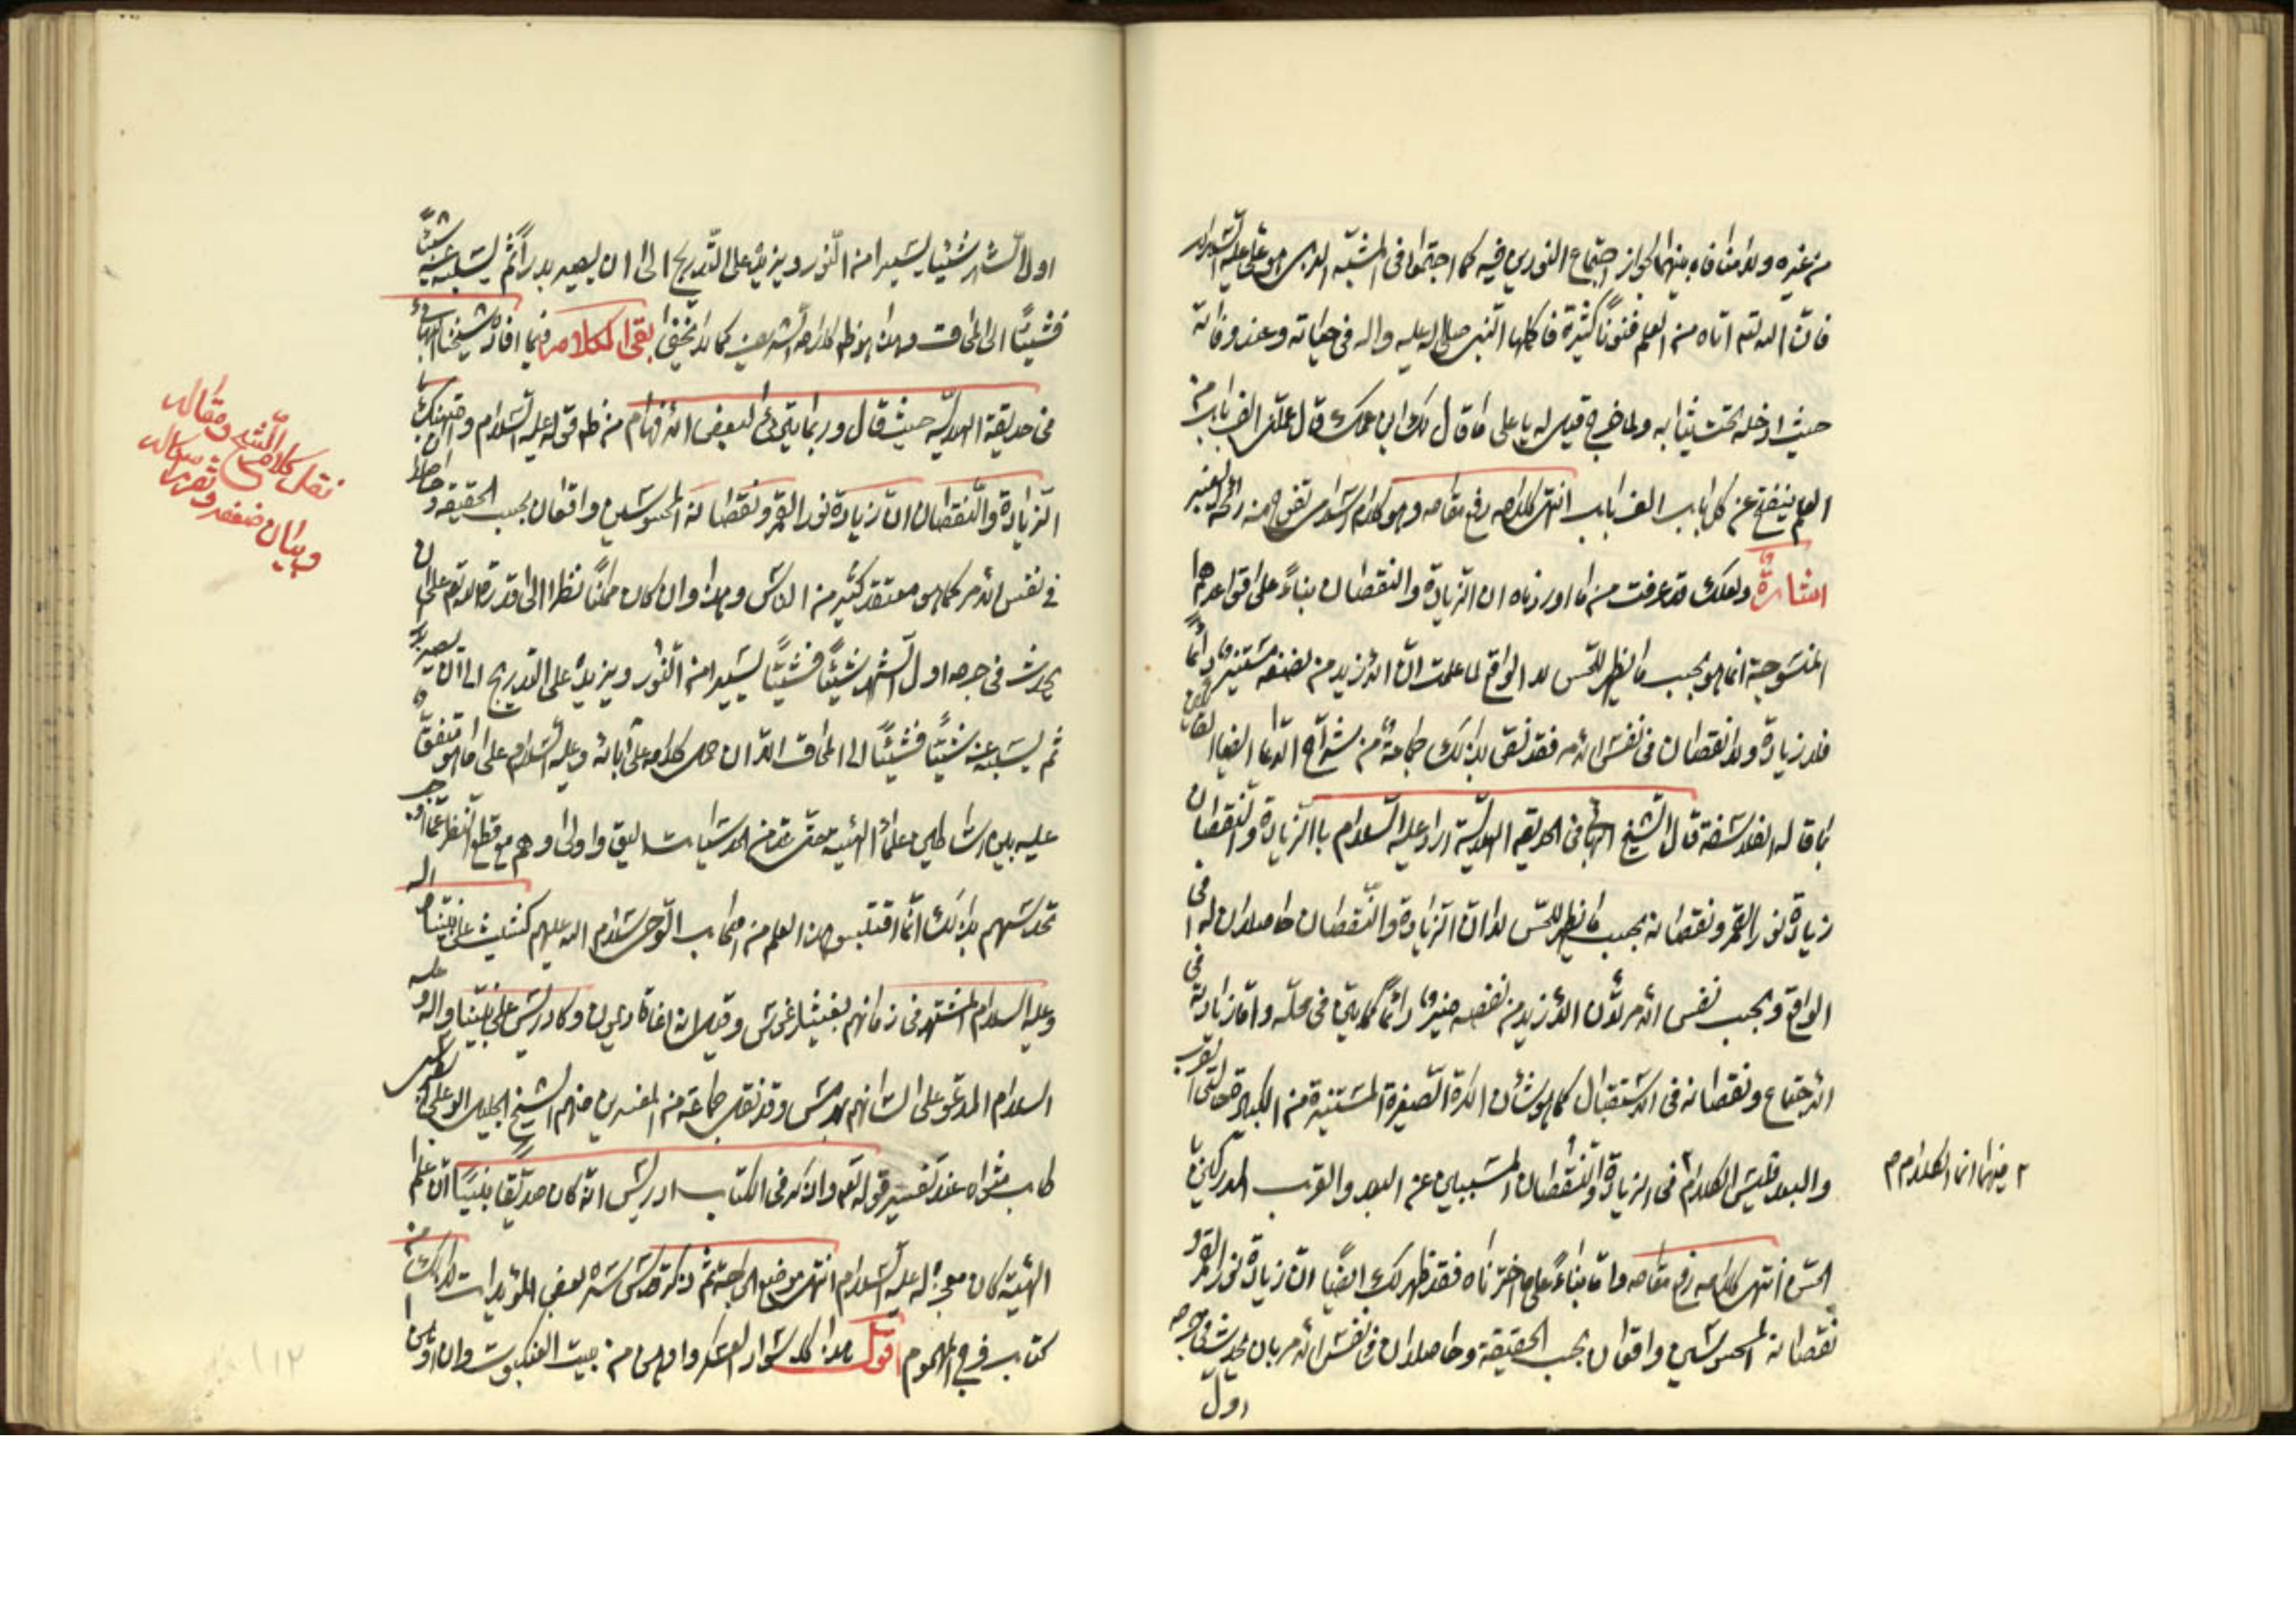 من غيره ولا منافاة بينهما لجواز اجتماع النورين فيه كما اجتمعا في المشبه الذي هو علي عليه السلام
فان الله تعالى اتاه من العلم فنونا كثيرة فاكملها النبي صلى الله عليه واله في حياته وعند وفاته
حيث ادخله تحت ثيابه ولما خرج قيل له يا علي ما قال لك ابن عمك قال علمني الف باب من
العلم ينفتح عن كل باب الف باب انتهى كلامه رفع مقامه وهو كلام تفوح منه رائحة العنبر
اشارة ولعلك قد عرفت من ما اوردناه ان الزيادة والنقصان بناء على قواعدهم
المنسوجة انما هو بحسب ما يظهر للحس لا الواقع لما علمت ان الازيد من نصفه مستنير دائما
فلا زيادة ولا نقصان في نفس الامر فقد نقى بذلك جماعة من شراح الدعا ايضا
بما قاله الفلاسفة قال الشيخ البهائي في الحديقة الهلالية اراد عليه السلام بالزيادة والنقصان
زيادة نور القمر ونقصانه بحسب ما يظهر للحس لا ان الزيادة والنقصان حاصلان له في
الواقع وبحسب نفس الامر لان الازيد من نصفه منير دائما كما بين في محله واما زيادته في
الاجتماع ونقصانه في الاستقبال كما هو شأن الكرة الصغيرة المستنيرة من الكبيرة حالتي القرب
والبعد فليس الكلام في الزيادة والنقصان المسببين عن البعد والقرب المدركين
٢ فيهما انما الكلام م
الحس انتهى كلامه رفع مقامه واما بناء على ما اخترناه فقد ظهر لك ايضا ان زيادة نور القمر و
نقصانه المحسوسين واقعان بحسب الحقيقة وحاصلان في نفس الامر بان يحدث في جرمه
اول
اول الشهر شيئا يسيرا من النور ويزيد على التدريج الى ان يصير بدرا ثم يسلبه عنه شيئا
فشيئا الى المحاق وهذا هو ظاهر كلامه الشريف كما لا يخفى بقي الكلام فيما افاده شيخنا البهائي
في حديقة الهلالية حيث قال وربما يترائ لبعض الافهام من ظاهر قوله عليه السلام وامتهنك
الزيادة والنقصان ان زيادة نور القمر ونقصانه المحسوسين واقعان بحسب الحقيقة وحاصلان
في نفس الامر كما هو معتقد كثير من الناس وهذا وان كان ممكنا نظرا الى قدرة الله تعالى على ان
يحدث في جرمه اول الشهر شيئا فشيئا يسيرا من النور ويزيد على التدريج الى ان يصير بدرا
ثم يسلبه عنه شيئا فشيئا الى المحاق الا ان حمل كلامه على آبائه وعليه السلام على ما هو متفق
عليه بين اساطين علماء الهيئة حتى عد من الحدسيات اليق واولى وهم مع قطع النظر عما اوجب
تحدسهم بذلك انما اقتبسوا هذا العلم من اصحاب الوحي سلام الله عليهم كشيث على نبينا واله
وعليه السلام المشتهر في زمانهم بفيثاغورس وقيل انه اغاثاذيمون وكادريس على نبينا واله وعليه
السلام المدعو على لسانهم بهرمس وقد نقل جماعة من المفسرين منهم الشيخ الجليل ابو علي الطبرسي
طاب ثراه عند تفسير قوله تعالى واذكر في الكتاب ادريس انه كان صديقا نبيا ان علم
الهيئة كان معجزة له عليه السلام انتهى موضع الحاجة ثم ذكر قدس سره بعض المؤيدات لذلك من
كتاب فرج المهموم اقول هذا كله اوهن من بيت العنكبوت وان اوهن
نقل كلام الشيخ ومقاله
وبيان ضعفه